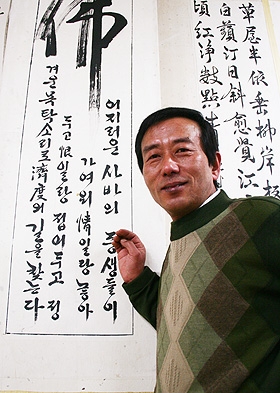 草屋半依垂柳岸板
白蘋汀日斜愈覺江
頃紅浮數點青
佛
어지러운 사바의 중생들이
가여의 情일랑 놓아
두고 恨일랑 접어두고 정
겨운 목탁소리로 濟度의 길을 찾는다